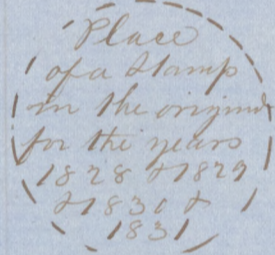 Place
of a Stamp
in the original
for the years
1828 & 1829
& 1830 &
1831